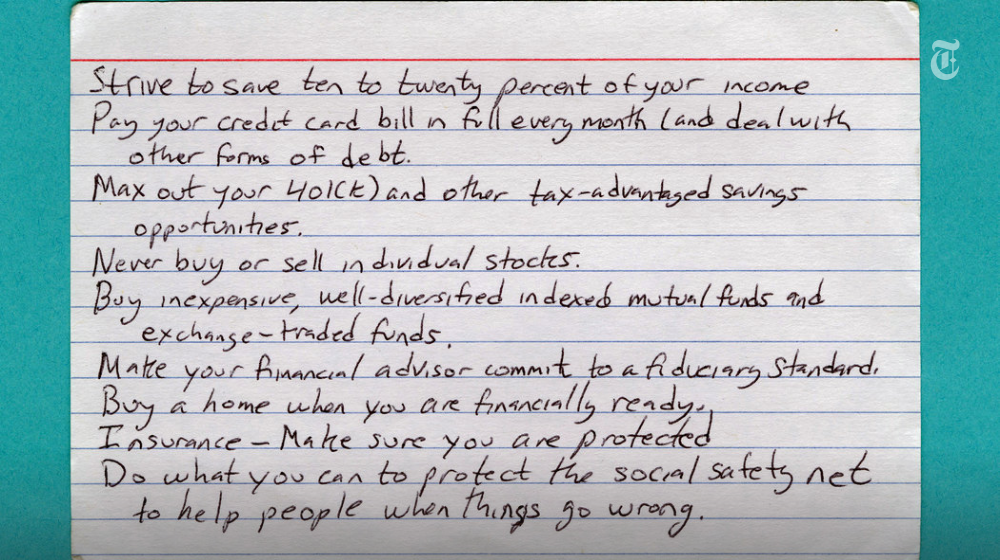 T
Strive to save ten to twenty percent of your income
Pay your credit card bill in full every month (and deal with
other forms of debt.
Max out your 401(K) and other tax-advantaged savings
opportunities.
Never buy or sell individual stocks.
Buy inexpensive, well-diversified indexed mutual funds and
exchange-traded funds.
Make your financial advisor commit to a fiduciary standard.
Buy a home when you are financially ready.
Insurance - Make sure you are protected
Do what you can to protect the social safety net
to help people when things go wrong.